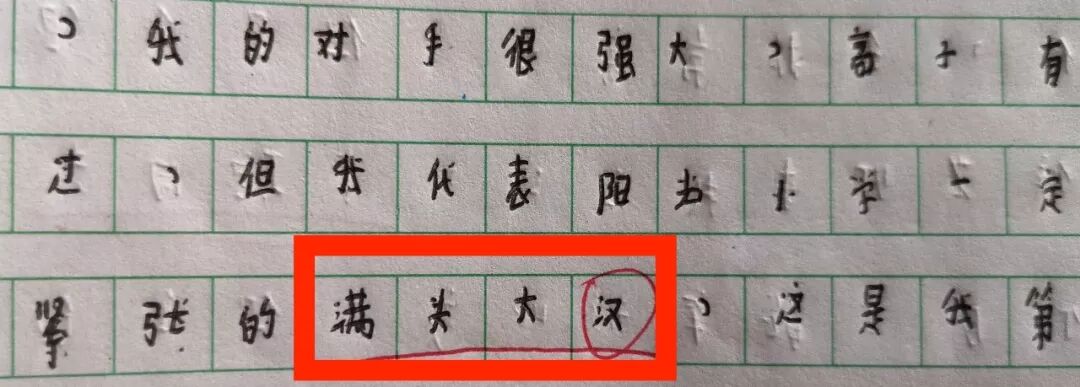 ，我的对手很强大，高手有
过，但我代表阳光小学一定
紧张的满头大汉，这是我第